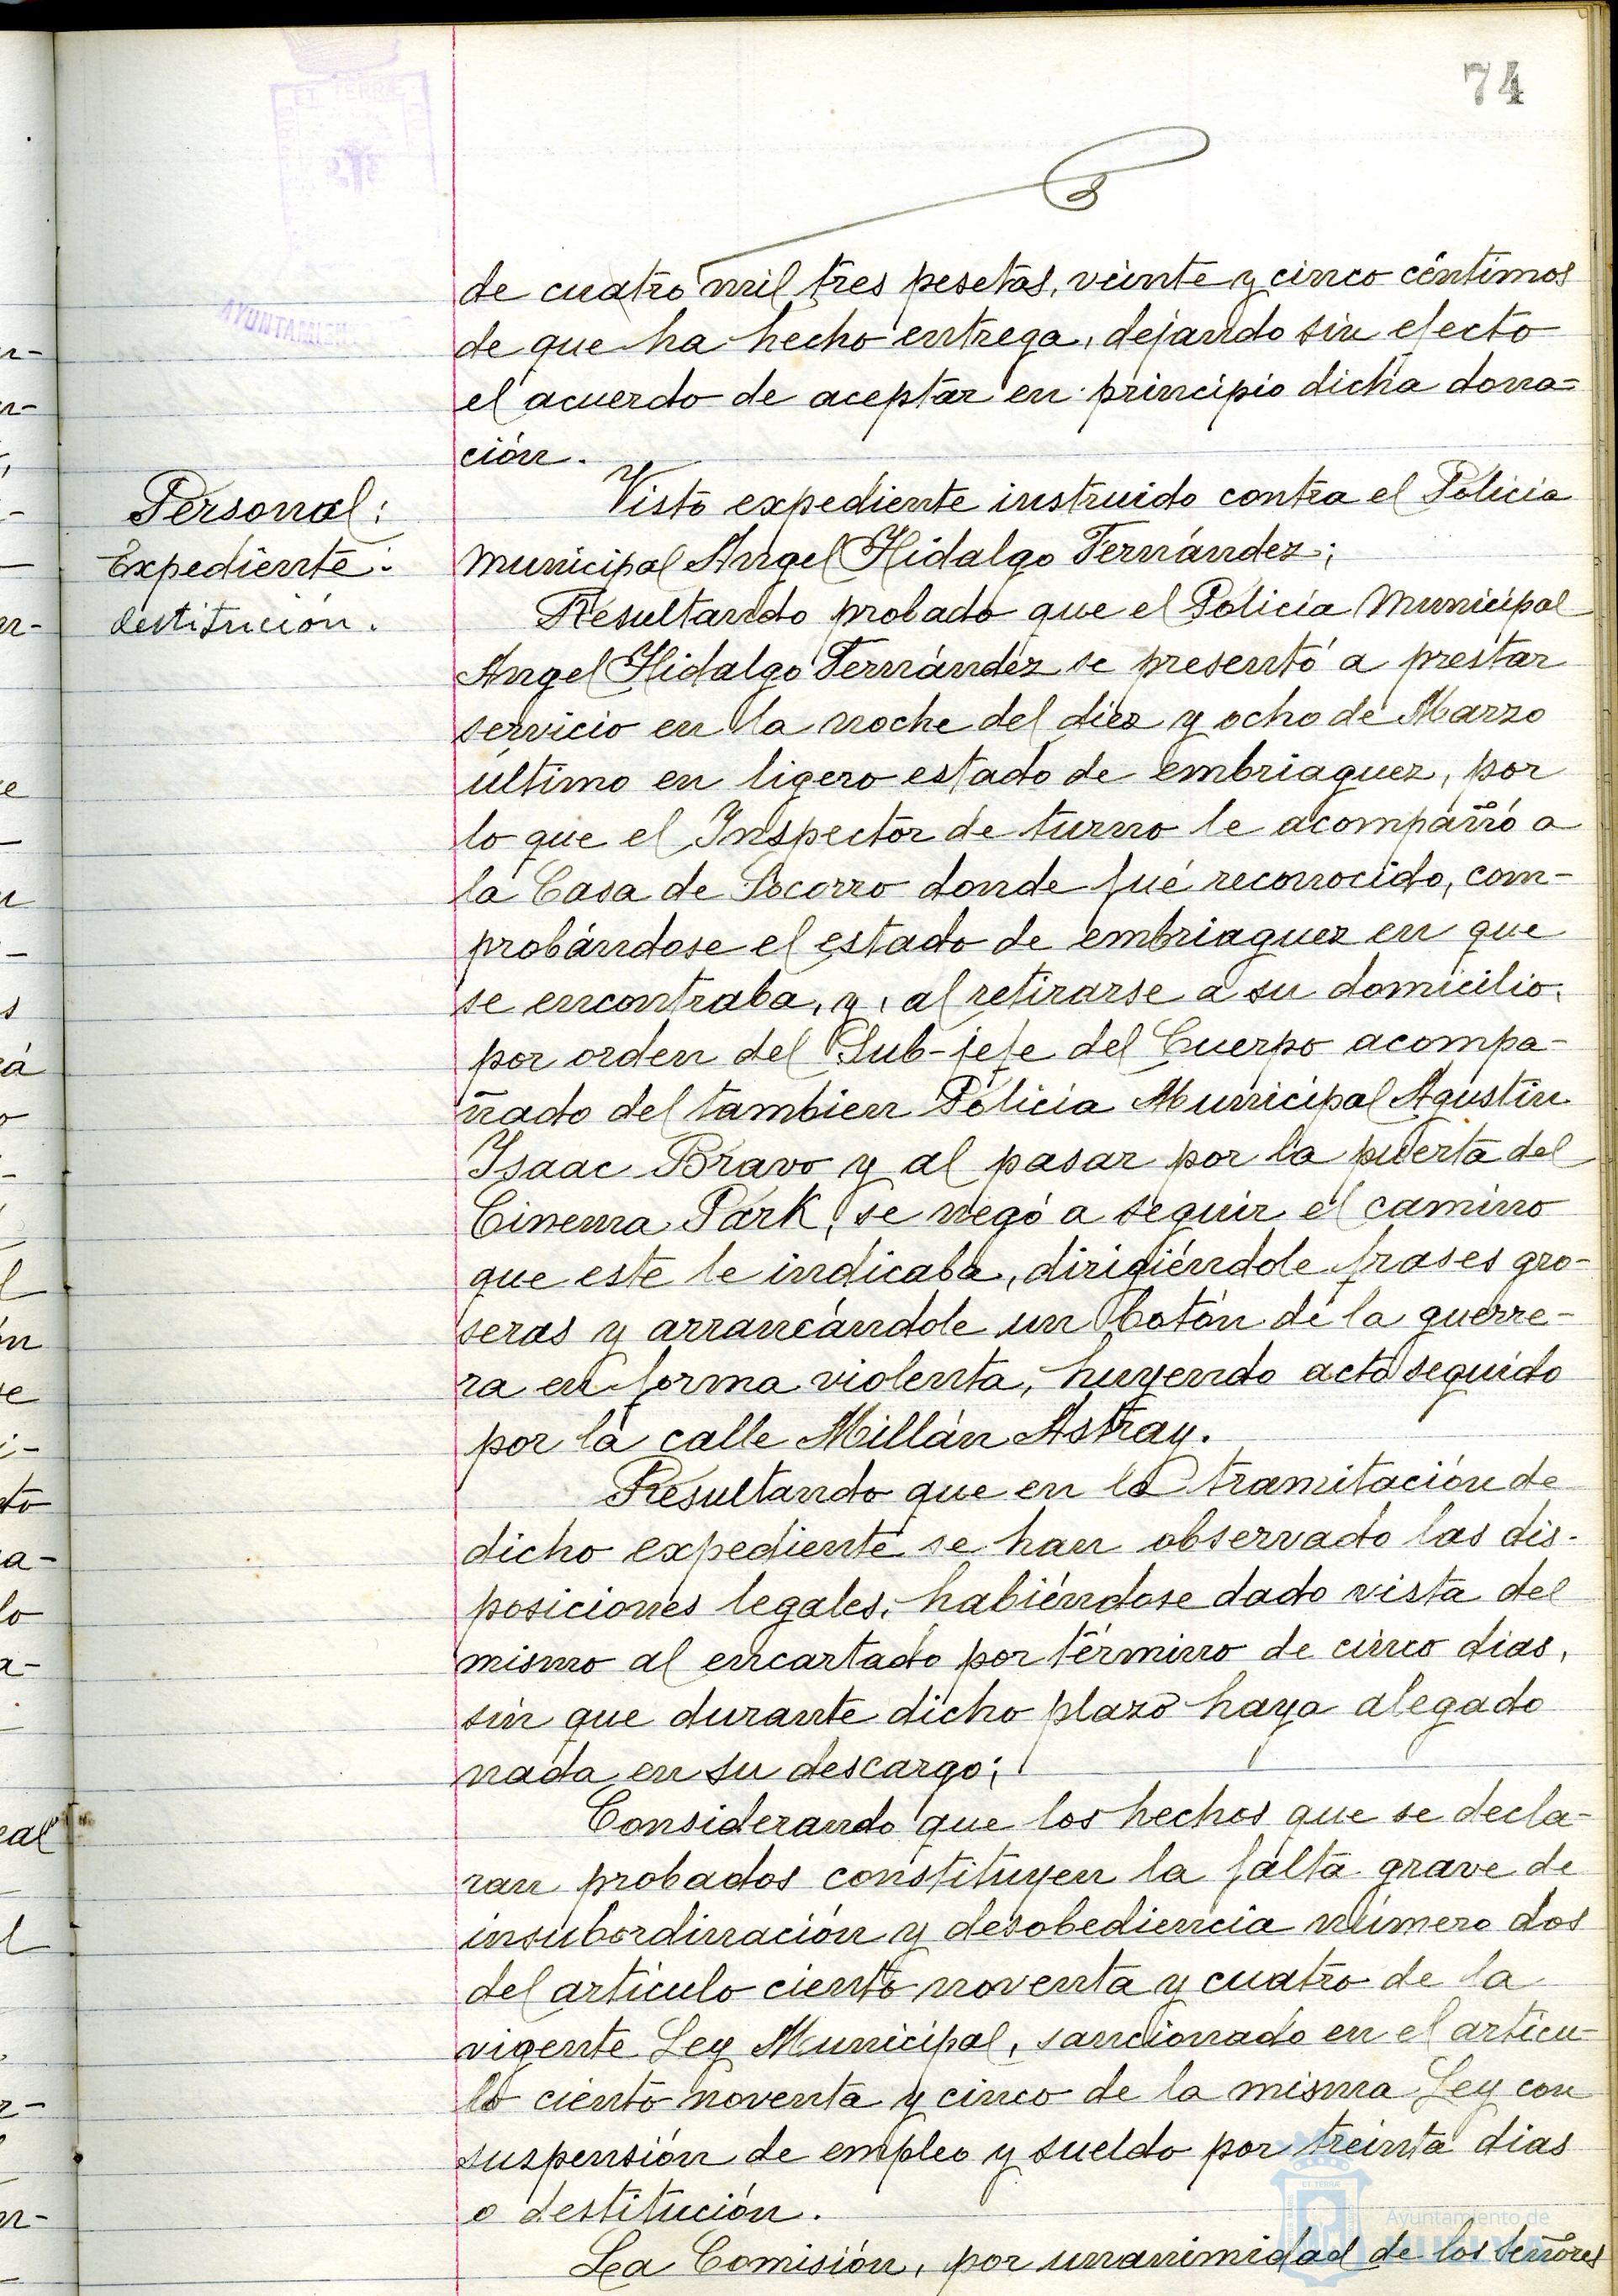 74
ET TERRÆ
AYUNTAMIEN
de cuatro mil tres pesetas, veinte y cinco céntimos
de que ha hecho entrega, dejando sin efecto
el acuerdo de aceptar en principio dicha dona=
ción.
Personal:
Expediente:
destitución.
Visto expediente instruido contra el Policia
Municipal Angel Hidalgo Fernández;
Resultando probado que el Policía Municipal
Angel Hidalgo Fernández se presentó a prestar
servicio en la noche del diez y ocho de Marzo
último en ligero estado de embriaguez, por
lo que el Inspector de turno le acompañó a
la Casa de Socorro donde fué reconocido, com-
probándose el estado de embriaguez en que
se encontraba, y, al retirarse a su domicilio,
por orden del Sub-jefe del Cuerpo acompa-
ñado del tambien Policía Municipal Agustin
Isaac Bravo y al pasar por la puerta del
Cinema Park, se negó a seguir el camino
que este le indicaba, dirigiéndole frases gro-
seras y arrancándole un botón de la guerre-
ra en forma violenta, huyendo acto seguido
por la calle Millán Astray.
Resultando que en la tramitación de
dicho expediente se han observado las dis-
posiciones legales, habiéndose dado vista del
mismo al encartado por término de cinco dias,
sin que durante dicho plazo haya alegado
nada en su descargo;
Considerando que los hechos que se decla-
ran probados constituyen la falta grave de
insubordinación y desobediencia número dos
del artículo ciento noventa y cuatro de la
vigente Ley Municipal, sancionado en el articu-
lo ciento noventa y cinco de la misma Ley con
suspensión de empleo y sueldo por treinta dias
o destitución.
La Comisión, por unanimidad de los Señores
Ayuntamiento de
HUELVA